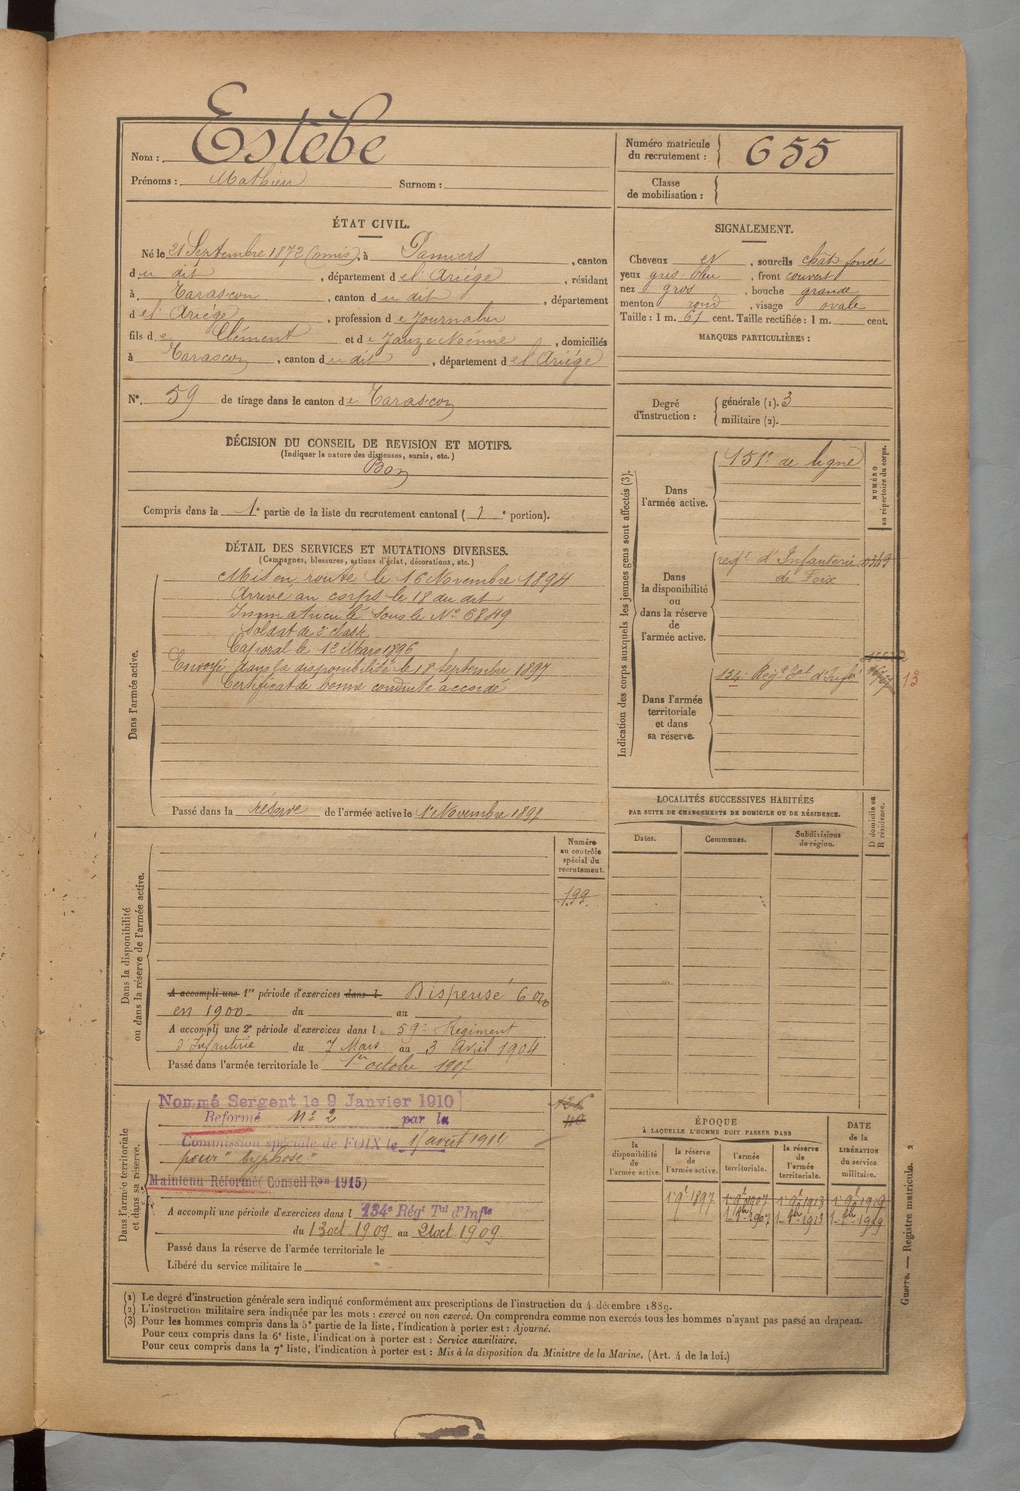 Nom : Estèbe
Prénoms : Mathieu Surnom :
Numéro matricule du recrutement : 655
Classe de mobilisation :
ÉTAT CIVIL.
Né le 21 Septembre 1872 (omis), à Pamiers, canton
d u dit, département d e l'Ariège, résidant
à Tarascon, canton d u dit, département
d e l'Ariège, profession d e Journalier
fils d e Clément et d e, domiciliés
à Tarascon, canton d u dit, département d e l'Ariége
N°. 59 de tirage dans le canton d e Tarascon
SIGNALEMENT.
Cheveux et, sourcils chât. foncé
yeux gris bleu, front couvert
nez gros, bouche grande
menton rond, visage ovale
Taille : 1 m. 61 cent. Taille rectifiée : 1 m. cent.
MARQUES PARTICULIÈRES :
Degré d'instruction : générale (1). 3
militaire (2).
DÉCISION DU CONSEIL DE REVISION ET MOTIFS.
(Indiquer la nature des dispenses, sursis, etc.)
Bon
Compris dans la 1e partie de la liste du recrutement cantonal ( 1 e portion).
DÉTAIL DES SERVICES ET MUTATIONS DIVERSES.
(Campagnes, blessures, actions d'éclat, décorations, etc.)
Dans l'armée active.
Mis en route le 16 Novembre 1894
Arrivé au corps le 18 du dit
Immatriculé sous le N° 6849
Soldat de 2e classe
Caporal le 12 Mars 1896
Envoyé dans la disponibilité le 18 Septembre 1897
Certificat de bonne conduite accordé
Passé dans la réserve de l'armée active le 1er Novembre 1898
Indication des corps auxquels les jeunes gens sont affectés (3).
NUMÉRO au répertoire du corps.
Dans l'armée active.
151e de ligne
Dans la disponibilité ou dans la réserve de l'armée active.
regt d'Infanterie
de Foix
Dans l'armée territoriale et dans sa réserve.
134e Régt Tal d'Infie
13
LOCALITÉS SUCCESSIVES HABITÉES
PAR SUITE DE CHANGEMENTS DE DOMICILE OU DE RÉSIDENCE.
Dates. Communes. Subdivisions de région. D domicile ou R résidence.
Dans la disponibilité ou dans la réserve de l'armée active.
Numéro au contrôle spécial du recrutement.
199
A accompli une 1re période d'exercices dans l Dispensé
en 1900 du au
A accompli une 2e période d'exercices dans l 59e Régiment
d'Infanterie du 7 Mars au 3 avril 1904
Passé dans l'armée territoriale le 1er octobre 1907
Dans l'armée territoriale et dans sa réserve.
Nommé Sergent le 9 Janvier 1910
Reformé n° 2 par la
Commission spéciale de FOIX le
pour
Maintenu Réformé (Conseil Ron 1915)
A accompli une période d'exercices dans l 134e Régt Tal d'Infie
du 13 oct. 1909 au 21 oct. 1909
Passé dans la réserve de l'armée territoriale le
Libéré du service militaire le
ÉPOQUE
À LAQUELLE L'HOMME DOIT PASSER DANS
la disponibilité de l'armée active. la réserve de l'armée active. l'armée territoriale. la réserve de l'armée territoriale.
DATE de la LIBÉRATION du service militaire.
1 9bre 1897 1 9bre 1907 1 9bre 1913 1 9bre 1919
Guerre. — Registre matricule. 2
(1) Le degré d'instruction générale sera indiqué conformément aux prescriptions de l'instruction du 4 décembre 1889.
(2) L'instruction militaire sera indiquée par les mots : exercé ou non exercé. On comprendra comme non exercés tous les hommes n'ayant pas passé au drapeau.
(3) Pour les hommes compris dans la 5e partie de la liste, l'indication à porter est : Ajourné.
Pour ceux compris dans la 6e liste, l'indication à porter est : Service auxiliaire.
Pour ceux compris dans la 7e liste, l'indication à porter est : Mis à la disposition du Ministre de la Marine. (Art. 4 de la loi.)